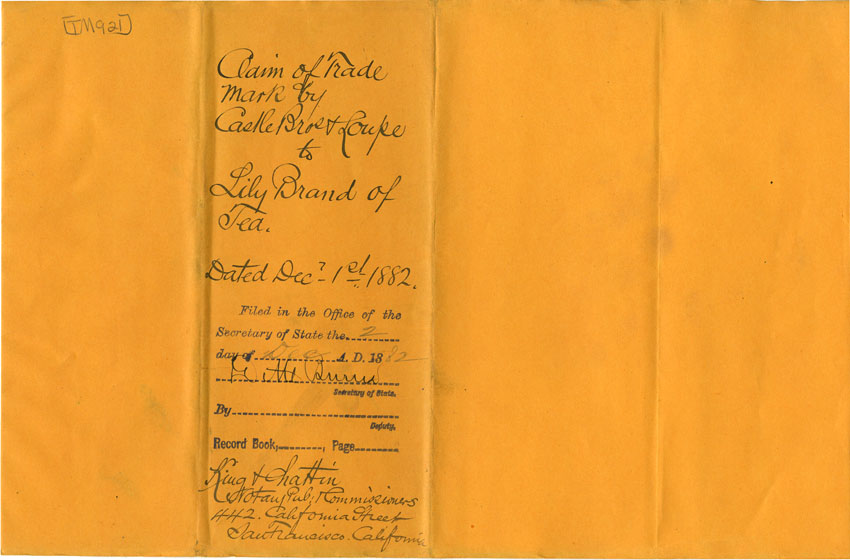 [TM921]
Claim of Trade
Mark by
Castle Bros & Loupe
to
Lily Brand of
Tea.
Dated Decr 1st 1882.
Filed in the Office of the
Secretary of State the 2
day of Dec A. D. 1882
Burns
Secretary of State.
By
Deputy.
Record Book, , Page
King & Chattin
Notary Pub; & Commissioners
442. California Street
San Francisco. California